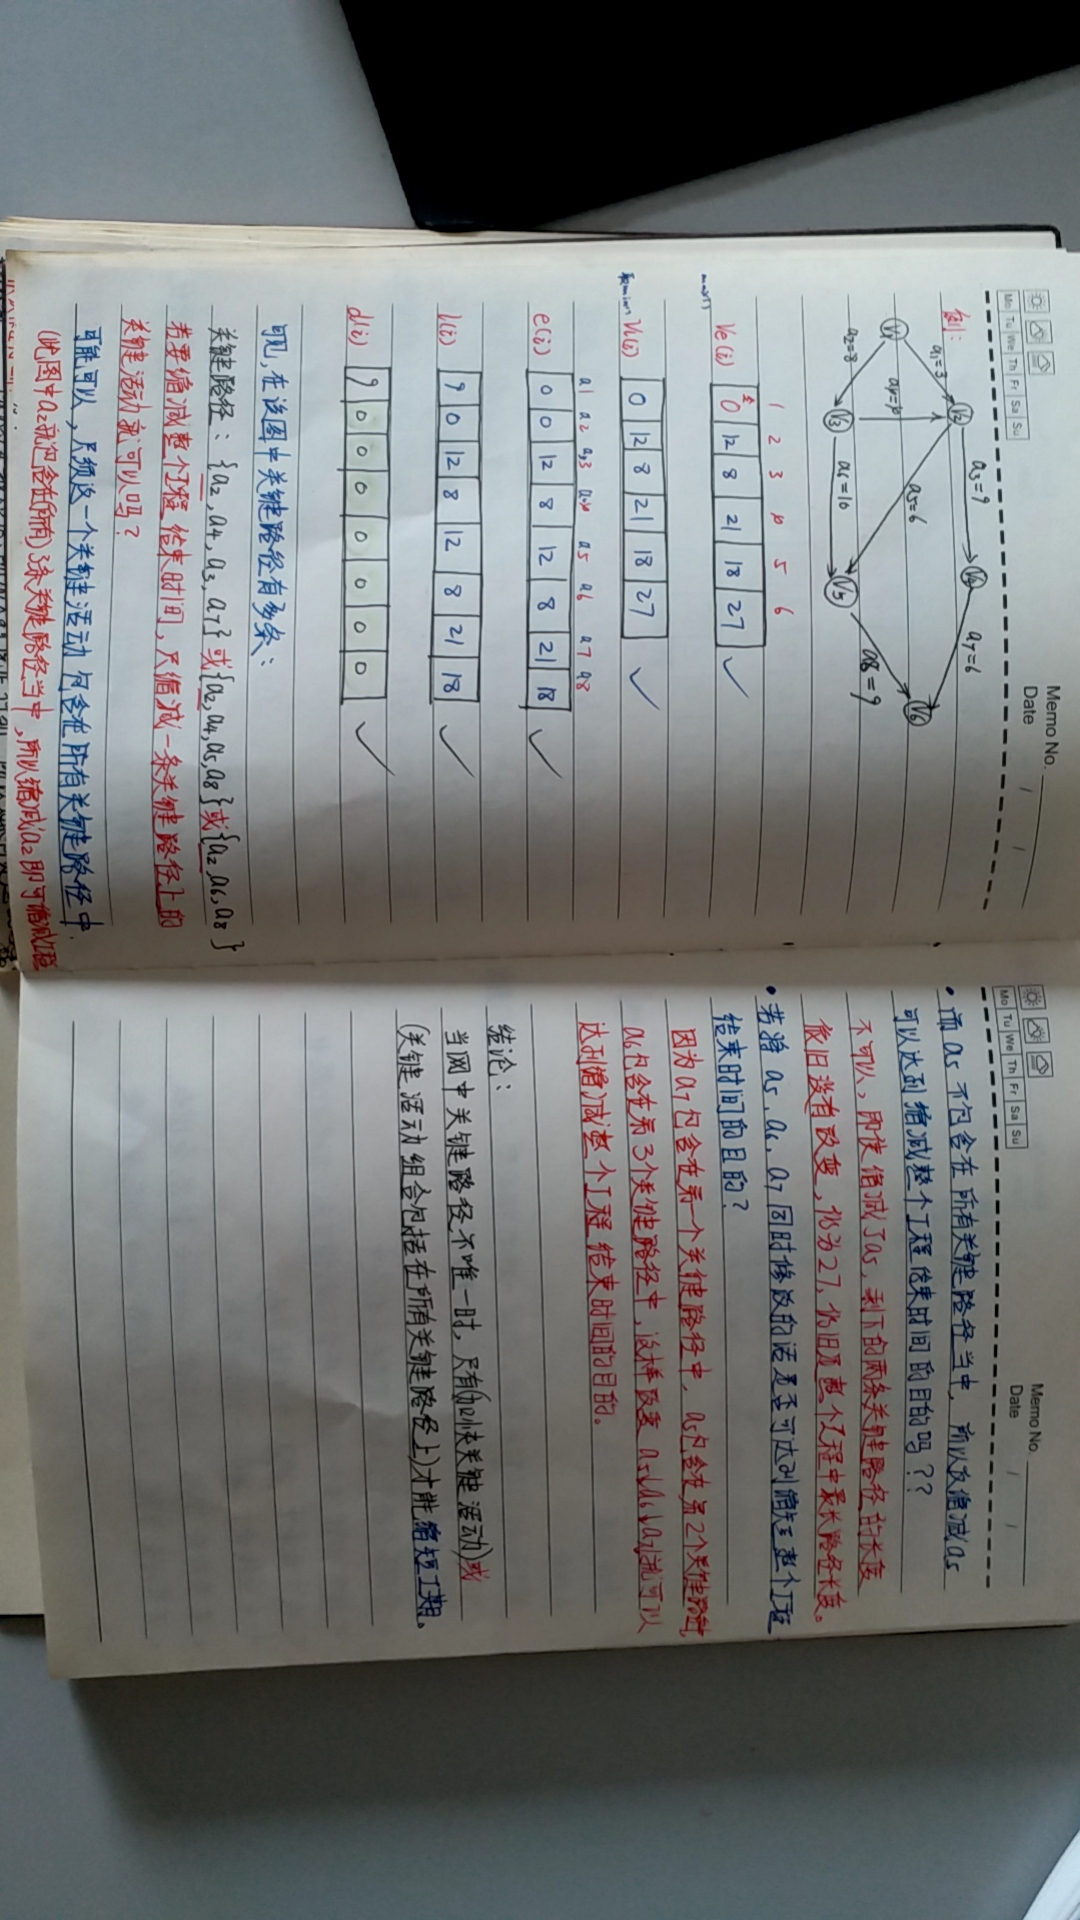 Memo No.
Mo Tu We Th Fr Sa Su
Date / /
例:
V1 V2 V3 V4 V5 V6
a1=3
a2=8
a3=9
a4=4
a5=6
a6=10
a7=6
a8=9
1 2 3 4 5 6
Ve(i) 0 12 8 21 18 27 ✓
Vl(i) 0 12 8 21 18 27 ✓
a1 a2 a3 a4 a5 a6 a7 a8
e(i) 0 0 12 8 12 8 21 18 ✓
l(i) 9 0 12 8 12 8 21 18 ✓
d(i) 9 0 0 0 0 0 0 0 ✓
可见,在该图中关键路径有多条:
关键路径:{a2,a4,a3,a7}或{a2,a4,a5,a8}或{a2,a6,a8}
若要缩减整个工程结束时间,只缩减一条关键路径上的
关键活动就可以吗?
可能可以,只须这一个关键活动包含在所有关键路径中.
(此图中a2就包含在(所有)3条关键路径当中,所以缩减a2即可缩减工程
Memo No.
Mo Tu We Th Fr Sa Su
Date / /
• 而a5不包含在所有关键路径当中,所以缩减a5
可以达到缩减整个工程结束时间的目的吗??
不可以,即使缩减了a5,剩下的两条关键路径的长度
依旧没有改变,仍为27,仍旧是整个工程中最长路径长度。
• 若将a5、a6、a7同时修改的话是否可达到缩短整个工程
结束时间的目的?
因为a7包含在第一个关键路径中,a5包含在第2个关键路径,
a6包含在第3个关键路径中,这样改变a5,a6,a7就可以
达到缩减整个工程结束时间的目的。
结论:
当网中关键路径不唯一时,只有(加快关键活动)或
(关键活动组合包括在所有关键路径上)才能缩短工期。